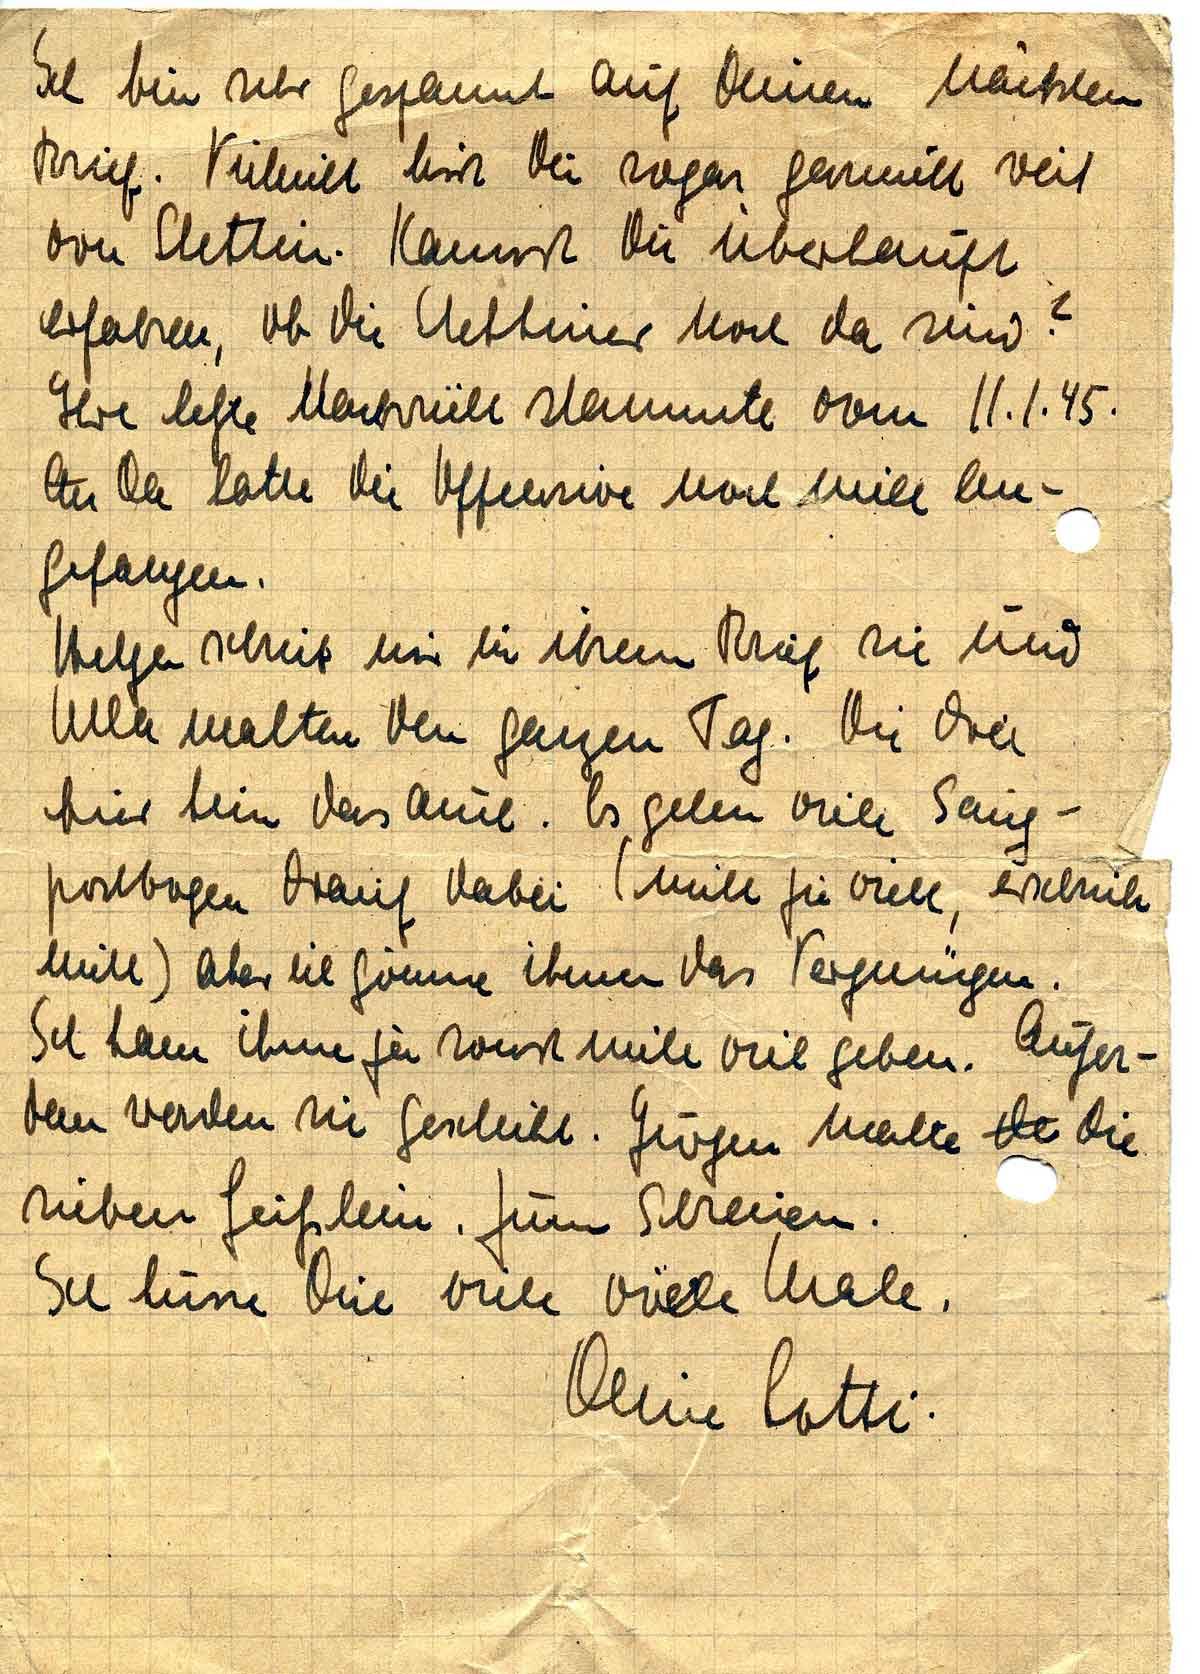 Ich bin sehr gespannt auf Deinen nächsten
Brief. Vielleicht bist Du sogar garnicht weit
von Stettin. Kannst Du überhaupt
erfahren, ob die Stettiner noch da sind?
Ihre letzte Nachricht stammte vom 11.1.45.
Da hatte die Offensive noch nicht an-
gefangen.
Helga schrieb mir in ihrem Brief sie und
Ulla malten den ganzen Tag. Die drei
hier tun das auch. Es gehen viele
postbogen drauf dabei (nicht zu viele, erschrick
nicht) aber ich gönne ihnen das Vergnügen.
Ich kann ihnen ja sonst nicht viel geben. Außer-
dem werden sie gescheiht. Jürgen malte die
sieben Geißlein. Zum Schreien.
Ich küsse Dich viele viele Male.
Deine Lotti.